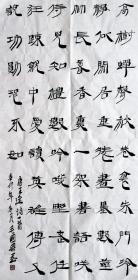 高樹蟬聲秋巷裏朱門冷
靜似閑居重裝墨畫數莖
竹長著香薰一架書語笑
侍兒知禮數吟哦野客任
狂疎就中愛讀英雄傳欲
立功勳恐不如
唐王建詩一首